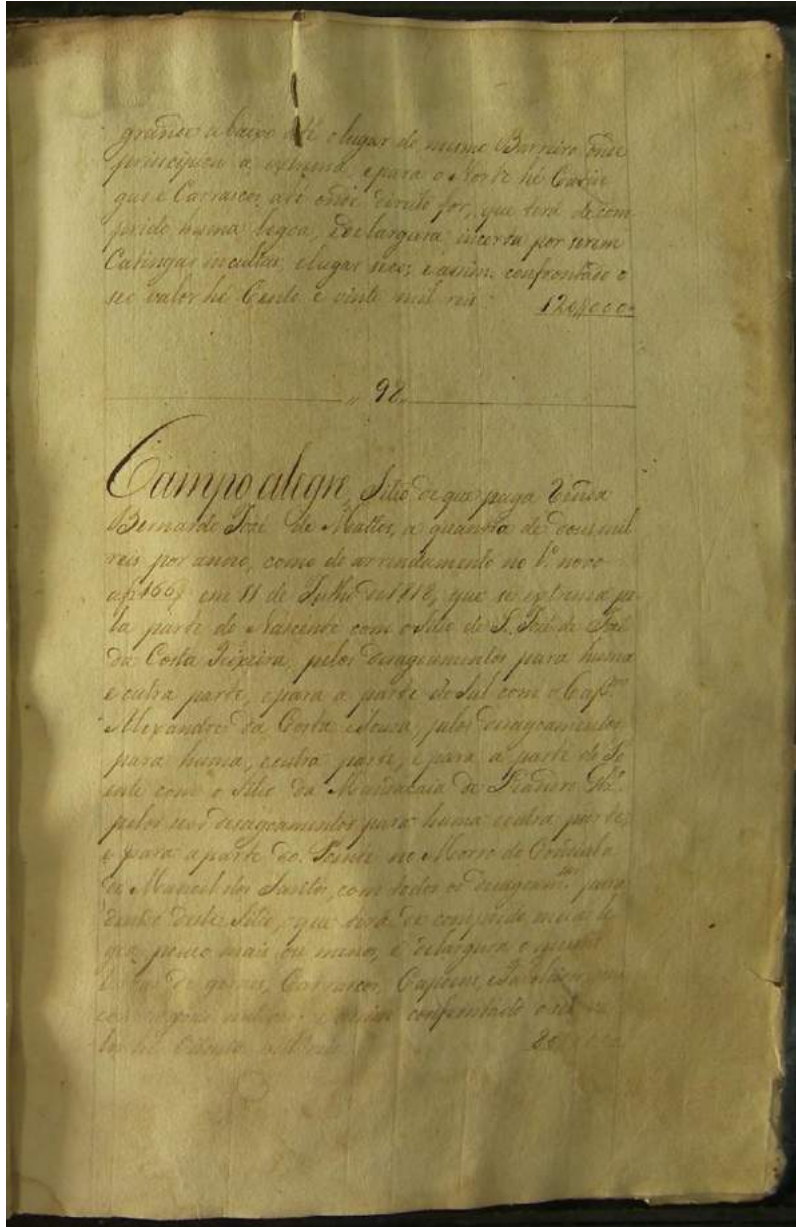 grande a baixo até o lugar do mesmo Barreiro onde
principiou a extrema, e para o Norte hé Catin
gas e Carrascos, até onde direito for, que terá de com
prido huma legoa, e de largura incerta por serem
Catingas incultas, e lugar seco; e assim confrontado o
seo valor hé Cento e vinte mil reis 120//000
98
Campo alegre, Sitio de que paga renda
Bernardo José de Mattos, a quantia de dous mil
reis por anno, como do arrendamento no L.º novo
a f 166 em 11 de Julho de 1818, que se extrema pe
la parte do Nascente com o Sitio de S. José de José
da Costa Teixeira, pelos desagoamentos para huma
e outra parte, e para a parte do Sul com o Cap.m
Alexandre da Costa e Souza, pelos desagoamentos
para huma, e outra parte, e para a parte do
com o Sitio da Mandaçaia de Leandro
pelos seos desagoamentos para huma e outra parte
e para a parte do Poente no Morro do
de Manoel dos Santos, com todos os desagoam.tos para
dentro deste Sitio, que terá de comprido meia le
goa pouco mais ou menos, e de largura o mesmo
de Carrascos, Capoens,
e assim confrontado o seo va
lor hé Oitenta mil reis